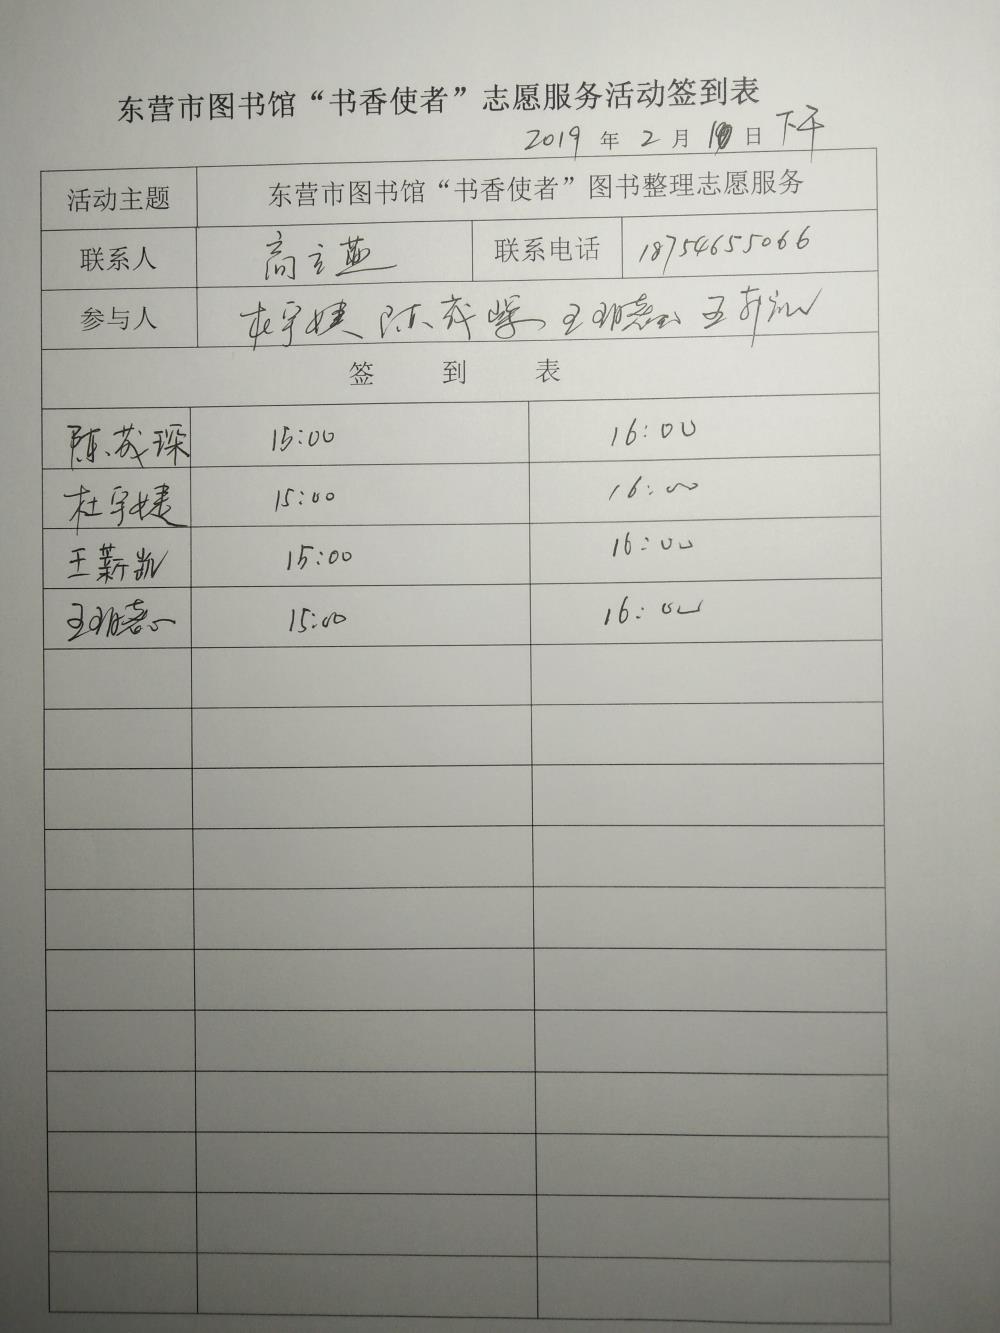 东营市图书馆“书香使者”志愿服务活动签到表
2019 年 2 月 日 下午
活动主题 东营市图书馆“书香使者”图书整理志愿服务
联系人 高立燕 联系电话 18754655066
参与人 杜宇婕 陈茂琛 王
签 到 表
陈茂琛 15:00 16:00
杜宇婕 15:00 16:00
王薪凯 15:00 16:00
王 15:00 16:00